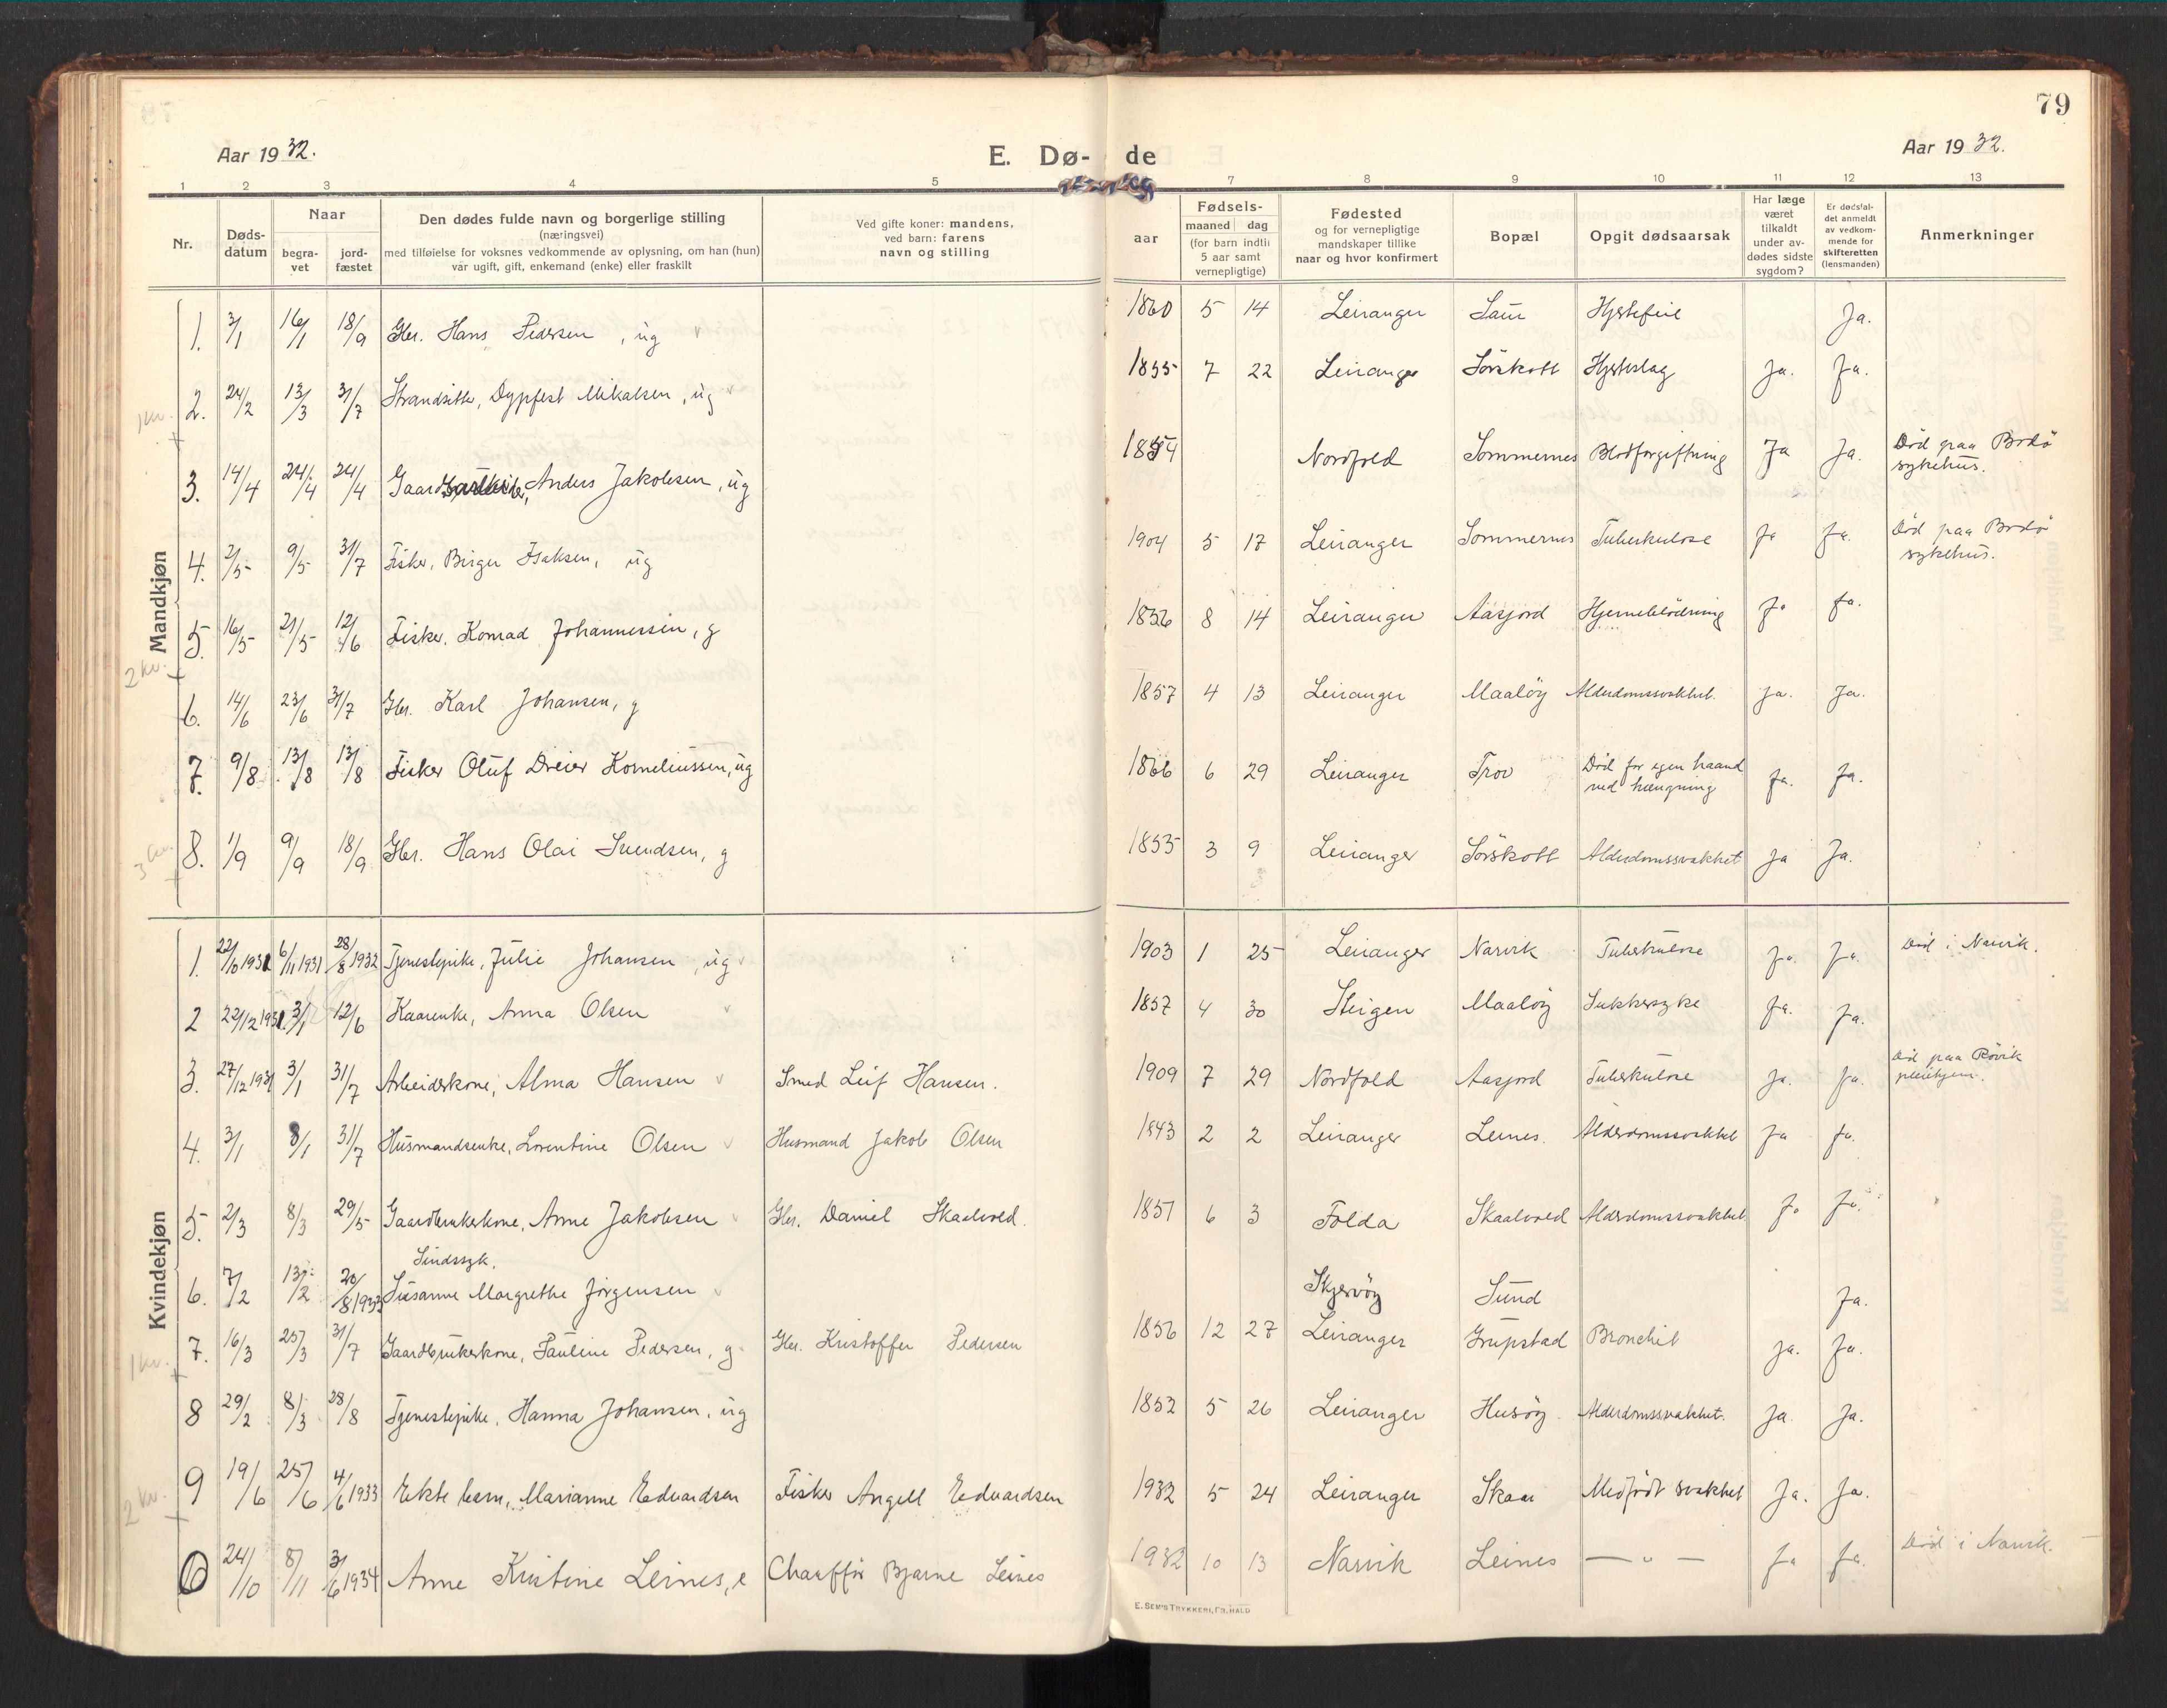 79
Aar 1932.
E. Dø- de
Aar 1932.
1 2 3 4 5 7 8 9 10 11 12 13
Nr.
Døds-
datum
Naar
begra-
vet
jord-
fæstet
Den dødes fulde navn og borgerlige stilling
(næringsvei)
med tilføielse for voksnes vedkommende av oplysning, om han (hun)
var ugift, gift, enkemand (enke) eller fraskilt
Ved gifte koner: mandens,
ved barn: farens
navn og stilling
Fødsels-
aar
maaned dag
(for barn indtil
5 aar samt
vernepligtige)
Fødested
og for vernepligtige
mandskaper tillike
naar og hvor konfirmert
Bopæl
Opgit dødsaarsak
Har læge
været
tilkaldt
under av-
dødes sidste
sygdom?
Er dødsfal-
det anmeldt
av vedkom-
mende for
skifteretten
(lensmanden)
Anmerkninger
Mandkjøn
1. 3/1 16/1 18/9 Gbr. Hans Pedersen, ug 1860 5 14 Leiranger Laur Hjertefeil Ja.
1 kv.
2. 24/2 13/3 31/7 Strandsitter, Dypfest Mikalsen, ug 1855 7 22 Leiranger Sörskott Hjerteslag Ja. Ja.
3. 14/4 24/4 24/4 Anders Jakobsen, ug Nordfold Sommernes Blodforgiftning Ja Ja. Död paa Bodö
sykehus.
4. 2/5 9/5 31/7 Fisker, Birger Isaksen, ug 1904 5 17 Leiranger Sommernes Tuberkulose Ja Ja. Död paa Bodö
sykehus.
5. 16/5 21/5 12/6 Fisker, Konrad Johannessen, g 1856 8 14 Leiranger Aasjord Hjerneblödning Ja Ja.
2 kv.
6. 14/6 23/6 31/7 Gbr. Karl Johansen, g 1857 4 13 Leiranger Maalöy Alderdomssvakhet. Ja. Ja.
7. 9/8 13/8 13/8 Fisker Oluf Dreier Korneliussen, ug 1866 6 29 Leiranger Trov Död for egen haand
ved hængning Ja. Ja.
3 kv.
8. 1/9 9/9 18/9 Gbr. Hans Olai Svendsen, g 1855 3 9 Leiranger Sörskott Alderdomssvakhet Ja Ja.
Kvindekjøn
1. 22/10 1931 6/11 1931 28/8 1932 Tjenestepike, Julie Johansen, ug 1903 1 25 Leiranger Narvik Tuberkulose Ja. Ja. Död i Narvik.
2 22/12 1931. 3/1 12/6 Kaarenke, Anna Olsen 1857 4 30 Steigen Maalöy Sukkersyke Ja. Ja.
3. 27/12 1931 3/1 31/7 Arbeiderkone, Alma Hansen Smed Leif Hansen. 1909 7 29 Nordfold Aasjord Tuberkulose Ja. Ja. Död paa Rövik
pleiehjem.
4. 3/1 8/1 31/7 Husmandsenke, Lorentine Olsen Husmand Jakob Olsen 1843 2 2 Leiranger Leines. Alderdomssvakhet Ja Ja.
5. 2/3 8/3 29/5 Gaardbrukerkone, Anne Jakobsen Gbr. Daniel Skaalvold. 1851 6 3 Folda Skaalvold Alderdomssvakhet Ja Ja.
Sindssyk,
6. 7/2 13/2 20/8 1933 Susanne Margrethe Jörgensen Skjervöy Sund Ja.
1 kv.
7. 16/3 25/3 31/7 Gaardbrukerkone, Pauline Pedersen, g Gbr. Kristoffer Pedersen 1856 12 27 Leiranger Grupstad Bronchit Ja. Ja.
8 29/2 8/3 28/8 Tjenestepike, Hanna Johansen, ug 1852 5 26 Leiranger Husöy Alderdomssvakhet. Ja. Ja.
2 kv.
9 19/6 25/6 4/6 1933 Ekte barn, Marianne Edvardsen Fisker Angell Edvardsen 1932 5 24 Leiranger Skaar Medfödt svakhet Ja. Ja.
24/10 8/11 3/6 1934 Anne Kristine Leines, e Chaufför Bjarne Leines 1932 10 13 Narvik Leines — " — Ja Ja. Död i Narvik.
E. SEM'S TRYKKERI, FR.HALD